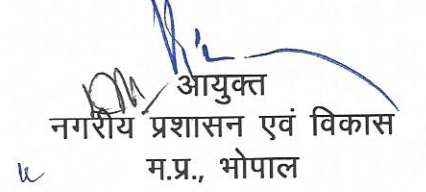 आयुक्त
नगरीय प्रशासन एवं विकास
म.प्र., भोपाल